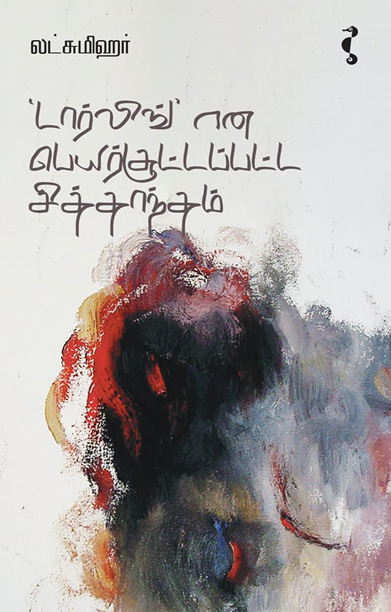 லட்சுமிஹர்
'டார்லிங்' என
பெயர்சூட்டப்பட்ட
சித்தாந்தம்